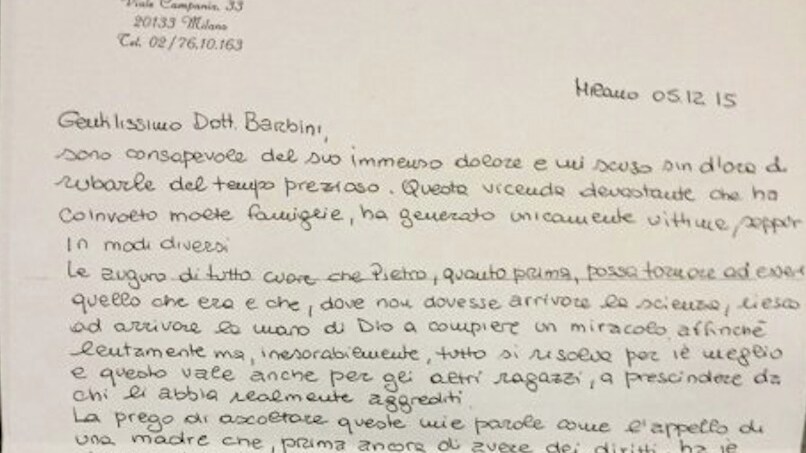 Viale Campania, 33
20133 Milano
Tel. 02/76.10.163
Milano 05.12.15
Gentilissimo Dott. Barbini,
sono consapevole del suo immenso dolore e mi scuso sin d'ora di
rubarle del tempo prezioso. Questa vicenda devastante che ha
coinvolto molte famiglie, ha generato unicamente vittime, seppur
in modi diversi
Le auguro di tutto cuore che Pietro, quanto prima, possa tornare ad esser
quello che era e che, dove non dovesse arrivare la scienza, riesca
ad arrivare la mano di Dio a compiere un miracolo affinchè
lentamente ma, inesorabilmente, tutto si risolva per il meglio
e questo vale anche per gli altri ragazzi, a prescindere da
chi li abbia realmente aggrediti.
La prego di ascoltare queste mie parole come l'appello di
una madre che, prima ancora di avere dei diritti, ha il